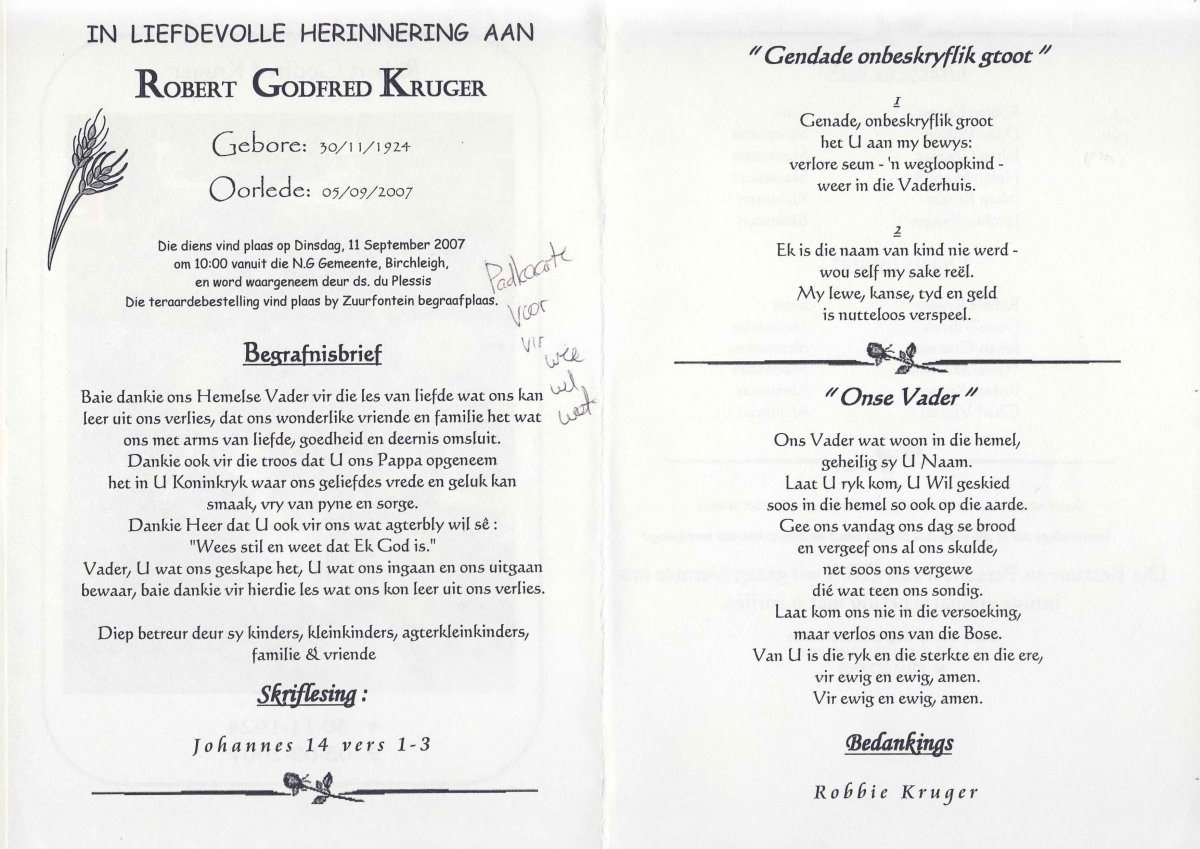 IN LIEFDEVOLLE HERINNERING AAN
ROBERT GODFRED KRUGER
Gebore: 30/11/1924
Oorlede: 05/09/2007
Die diens vind plaas op Dinsdag, 11 September 2007
om 10:00 vanuit die N.G Gemeente, Birchleigh,
en word waargeneem deur ds. du Plessis
Die teraardebestelling vind plaas by Zuurfontein begraafplaas.
Padkaarte
voor
vir
wie
wil
weet
Begrafnisbrief
Baie dankie ons Hemelse Vader vir die les van liefde wat ons kan
leer uit ons verlies, dat ons wonderlike vriende en familie het wat
ons met arms van liefde, goedheid en deernis omsluit.
Dankie ook vir die troos dat U ons Pappa opgeneem
het in U Koninkryk waar ons geliefdes vrede en geluk kan
smaak, vry van pyne en sorge.
Dankie Heer dat U ook vir ons wat agterbly wil sê :
"Wees stil en weet dat Ek God is."
Vader, U wat ons geskape het, U wat ons ingaan en ons uitgaan
bewaar, baie dankie vir hierdie les wat ons kon leer uit ons verlies.
Diep betreur deur sy kinders, kleinkinders, agterkleinkinders,
familie & vriende
Skriflesing :
Johannes 14 vers 1-3
" Gendade onbeskryflik gtoot "
1
Genade, onbeskryflik groot
het U aan my bewys:
verlore seun - 'n wegloopkind -
weer in die Vaderhuis.
2
Ek is die naam van kind nie werd -
wou self my sake reël.
My lewe, kanse, tyd en geld
is nutteloos verspeel.
" Onse Vader "
Ons Vader wat woon in die hemel,
geheilig sy U Naam.
Laat U ryk kom, U Wil geskied
soos in die hemel so ook op die aarde.
Gee ons vandag ons dag se brood
en vergeef ons al ons skulde,
net soos ons vergewe
dié wat teen ons sondig.
Laat kom ons nie in die versoeking,
maar verlos ons van die Bose.
Van U is die ryk en die sterkte en die ere,
vir ewig en ewig, amen.
Vir ewig en ewig, amen.
Bedankings
Robbie Kruger